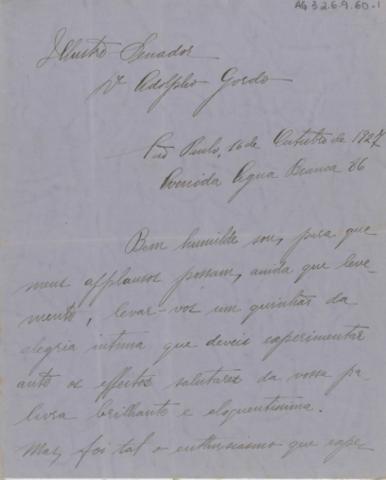 AG 3.2.6.9.60-1
Illustre Senador
Dr Adolpho Gordo
São Paulo, 16 de Outubro de 1927
Avenida Agua Branca 86
Bem humilde sou, para que
meus applausos possam, ainda que leve-
mente, levar-vos um quinhão da
alegria intima que deveis experimentar
ante os effeitos salutares da vossa pa-
lavra brilhante e eloquentissima.
Mas, foi tal o enthusiasmo que expe-